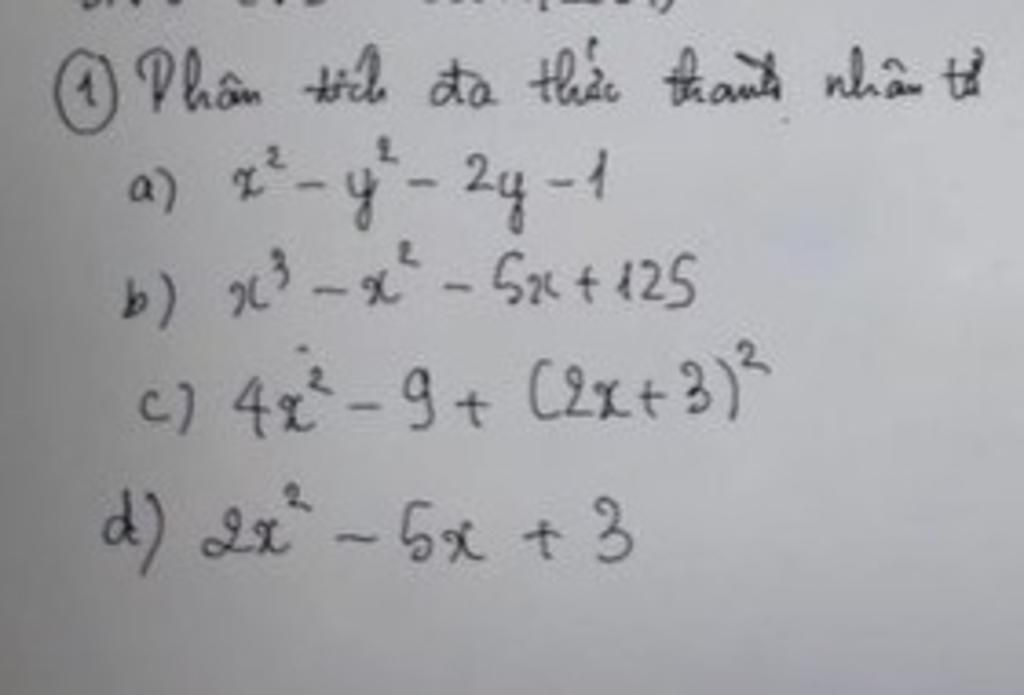 ① Phân tích đa thức thành nhân tử
a) x² - y² - 2y - 1
b) x³ - x² - 5x + 125
c) 4x² - 9 + (2x + 3)²
d) 2x² - 5x + 3